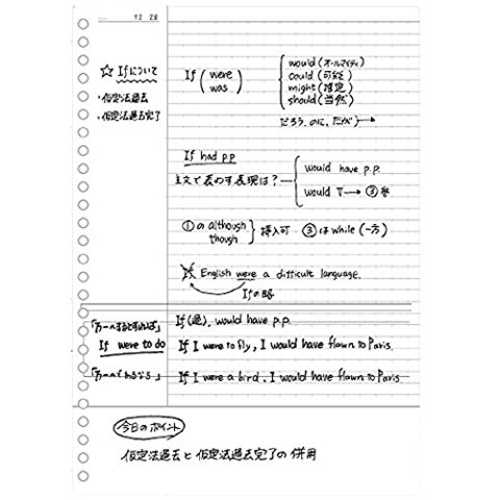 12 28
☆ Ifについて
・仮定法過去
・仮定法過去完了
If ( were
was )
would (オールマイティ)
could (可能)
might (推定)
should (当然)
だろう、のに、
If had p.p.
主文で表わす表現は?
would have p.p.
would
①の although
though } 挿入可 ③はwhile (一方)
English were a difficult language.
Ifの
「万一〜するとすれば」 If(過), would have p.p.
If were to do If I were to fly, I would have flown to Paris.
If I were a bird, I would have flown to Paris.
今日のポイント
仮定法過去と仮定法過去完了の併用